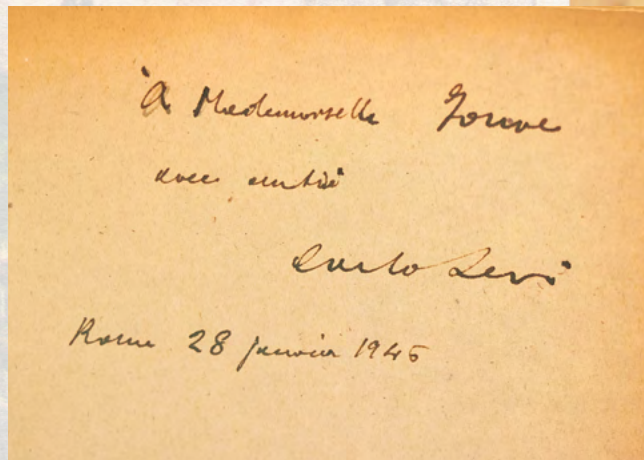 À Mademoiselle
avec amitié
Carlo Levi
Rome 28 janvier 1946